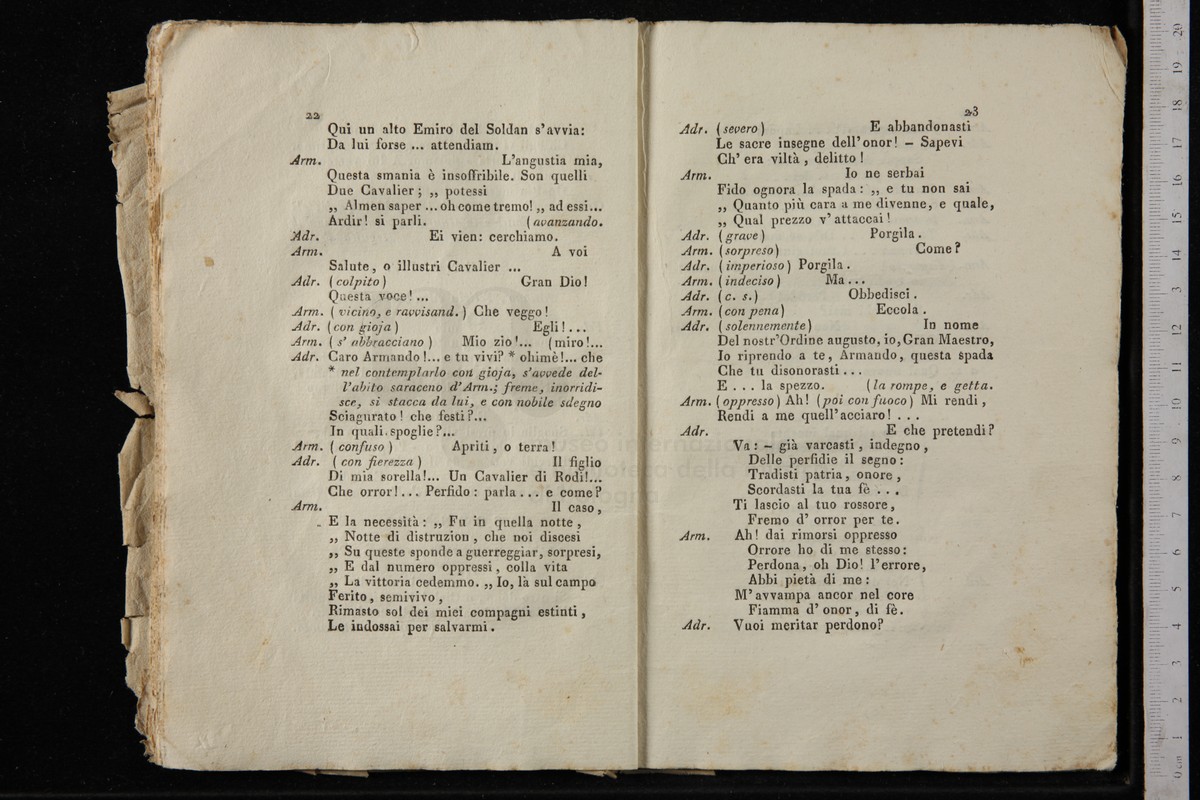 22
Qui un alto Emiro del Soldan s'avvia:
Da lui forse ... attendiam.
Arm. L'angustia mia,
Questa smania è insoffribile. Son quelli
Due Cavalier; ,, potessi
,, Almen saper ... oh come tremo! ,, ad essi...
Ardir! si parli. (avanzando.
Adr. Ei vien: cerchiamo.
Arm. A voi
Salute, o illustri Cavalier ...
Adr. (colpito) Gran Dio!
Questa voce! ...
Arm. (vicino, e ravvisand.) Che veggo!
Adr. (con gioja) Egli! ...
Arm. (s' abbracciano) Mio zio!... (miro!...
Adr. Caro Armando!... e tu vivi? * ohimè!... che
* nel contemplarlo con gioja, s'avvede del-
l'abito saraceno d'Arm.; freme, inorridi-
sce, si stacca da lui, e con nobile sdegno
Sciagurato! che festi?...
In quali spoglie?...
Arm. (confuso) Apriti, o terra!
Adr. (con fierezza) Il figlio
Di mia sorella!... Un Cavalier di Rodi!...
Che orror!... Perfido: parla... e come?
Arm. Il caso,
E la necessità: ,, Fu in quella notte,
,, Notte di distruzion, che noi discesi
,, Su queste sponde a guerreggiar, sorpresi,
,, E dal numero oppressi, colla vita
,, La vittoria cedemmo. ,, Io, là sul campo
Ferito, semivivo,
Rimasto sol dei miei compagni estinti,
Le indossai per salvarmi.
23
Adr. (severo) E abbandonasti
Le sacre insegne dell'onor! — Sapevi
Ch' era viltà, delitto!
Arm. Io ne serbai
Fido ognora la spada: ,, e tu non sai
,, Quanto più cara a me divenne, e quale,
,, Qual prezzo v' attaccai!
Adr. (grave) Porgila.
Arm. (sorpreso) Come?
Adr. (imperioso) Porgila.
Arm. (indeciso) Ma...
Adr. (c. s.) Obbedisci.
Arm. (con pena) Eccola.
Adr. (solennemente) In nome
Del nostr'Ordine augusto, io, Gran Maestro,
Io riprendo a te, Armando, questa spada
Che tu disonorasti...
E... la spezzo. (la rompe, e getta.
Arm. (oppresso) Ah! (poi con fuoco) Mi rendi,
Rendi a me quell'acciaro! ...
Adr. E che pretendi?
Va: — già varcasti, indegno,
Delle perfidie il segno:
Tradisti patria, onore,
Scordasti la tua fè ...
Ti lascio al tuo rossore,
Fremo d' orror per te.
Arm. Ah! dai rimorsi oppresso
Orrore ho di me stesso:
Perdona, oh Dio! l'errore,
Abbi pietà di me:
M' avvampa ancor nel core
Fiamma d' onor, di fè.
Adr. Vuoi meritar perdono?